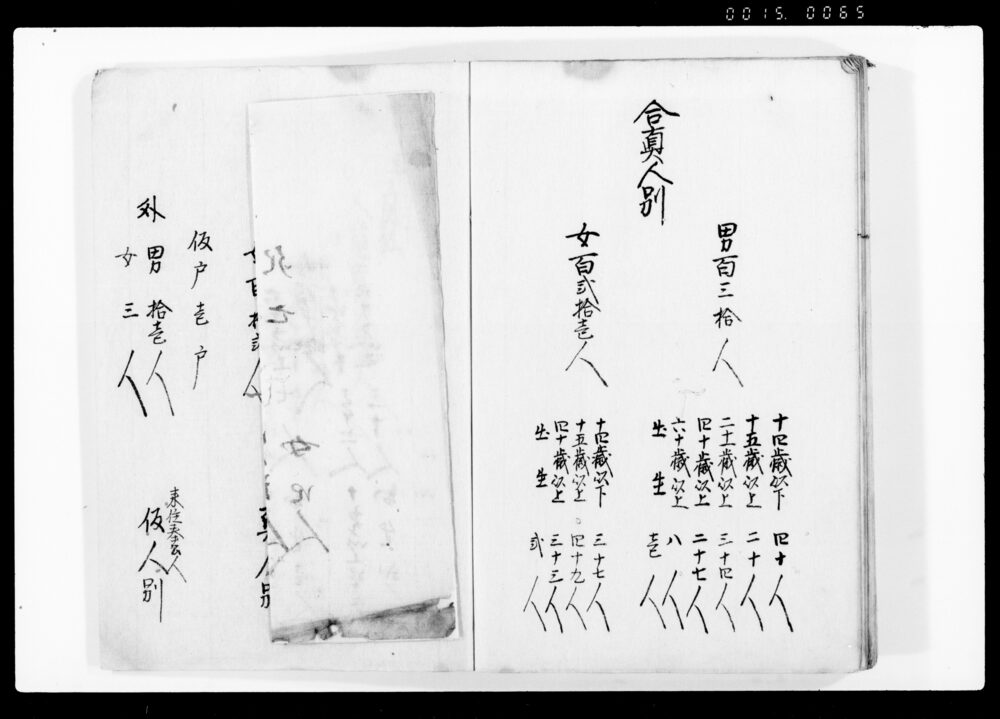 0015. 0065
合真人別
男百三拾人
十四歳以下 四十人
十五歳以上 二十人
二十一歳以上 三十四人
四十歳以上 二十七人
六十歳以上 八人
出生 壱人
女百弐拾壱人
十四歳以下 三十七人
十五歳以上 四十九人
四十歳以上 三十三人
出生 弐人
死亡
女四人
仮戸壱戸
外男拾壱人
女三人
来住奉公人
仮人別